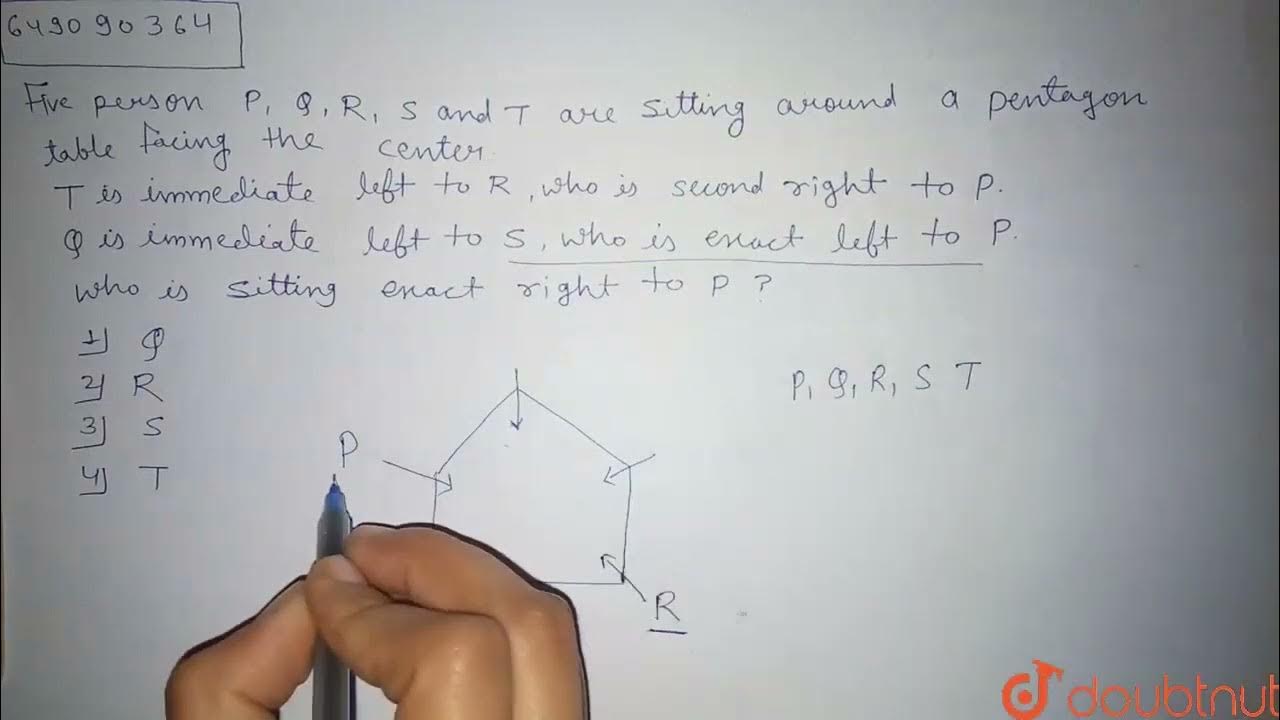 649090364
Five person P, Q, R, S and T are sitting around a pentagon
table facing the center.
T is immediate left to R, who is second right to P.
Q is immediate left to S, who is exact left to P.
who is sitting exact right to P?
1) Q
2) R
3) S
4) T
P, Q, R, S T
P
R
doubtnut